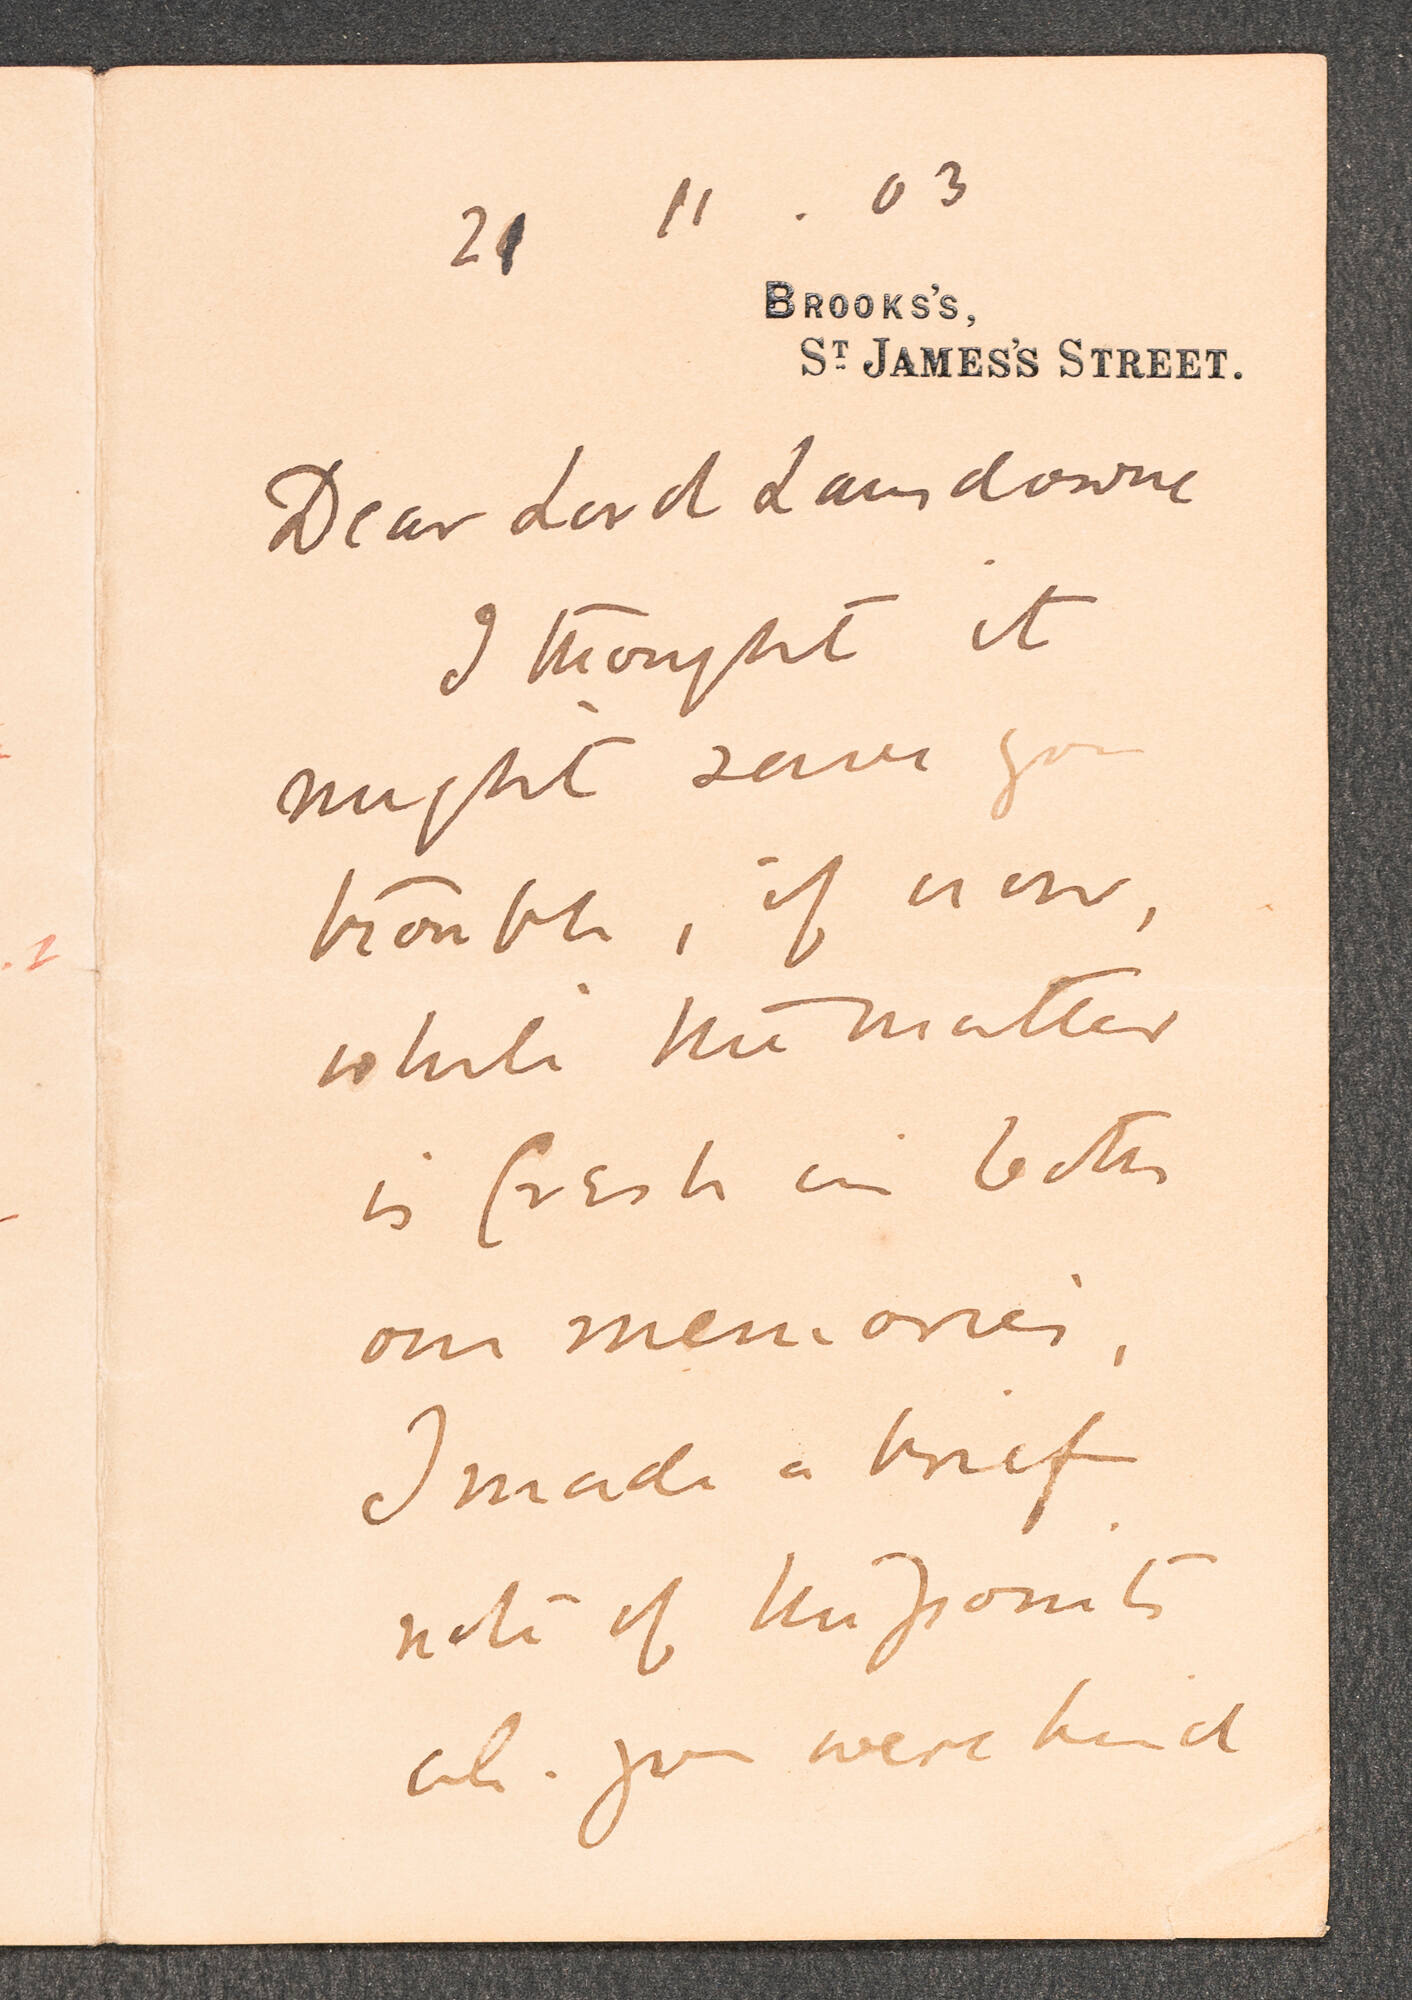 21 11 . 03
BROOKS'S,
ST JAMES'S STREET.
Dear Lord Lansdowne
I thought it
might save you
trouble, if now,
while the matter
is fresh in both
our memories,
I made a brief
note of the points
&c. you were kind